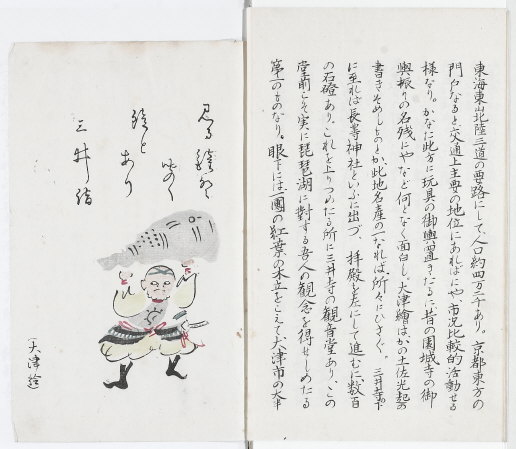 東海東山北陸三道の要路にして、人口約四万二千あり。京都東方の
門戸なると、交通上主要の地位にあればにや、市況比較的活動せる
様なり。かなた此方に玩具の御輿置きたるに、昔の園城寺の御
輿振りの名残にやなど何となく面白し。大津繪はかの土佐光起の
書きそめしものとか、此地名産の一なれば、所々にひさぐ。三井寺の下
に至れば長等神社といふに出づ、拝殿を左にして進むに数百
の石磴あり、これを上りつめたる所に三井寺の観音堂あり、この
堂前こそ実に琵琶湖に對する吾人の観念を得せしめたる
第一のものなり。眼下には一團の紅葉の木立をこえて大津市の大半
見る
鐘と
あり
三井
(大津繪)